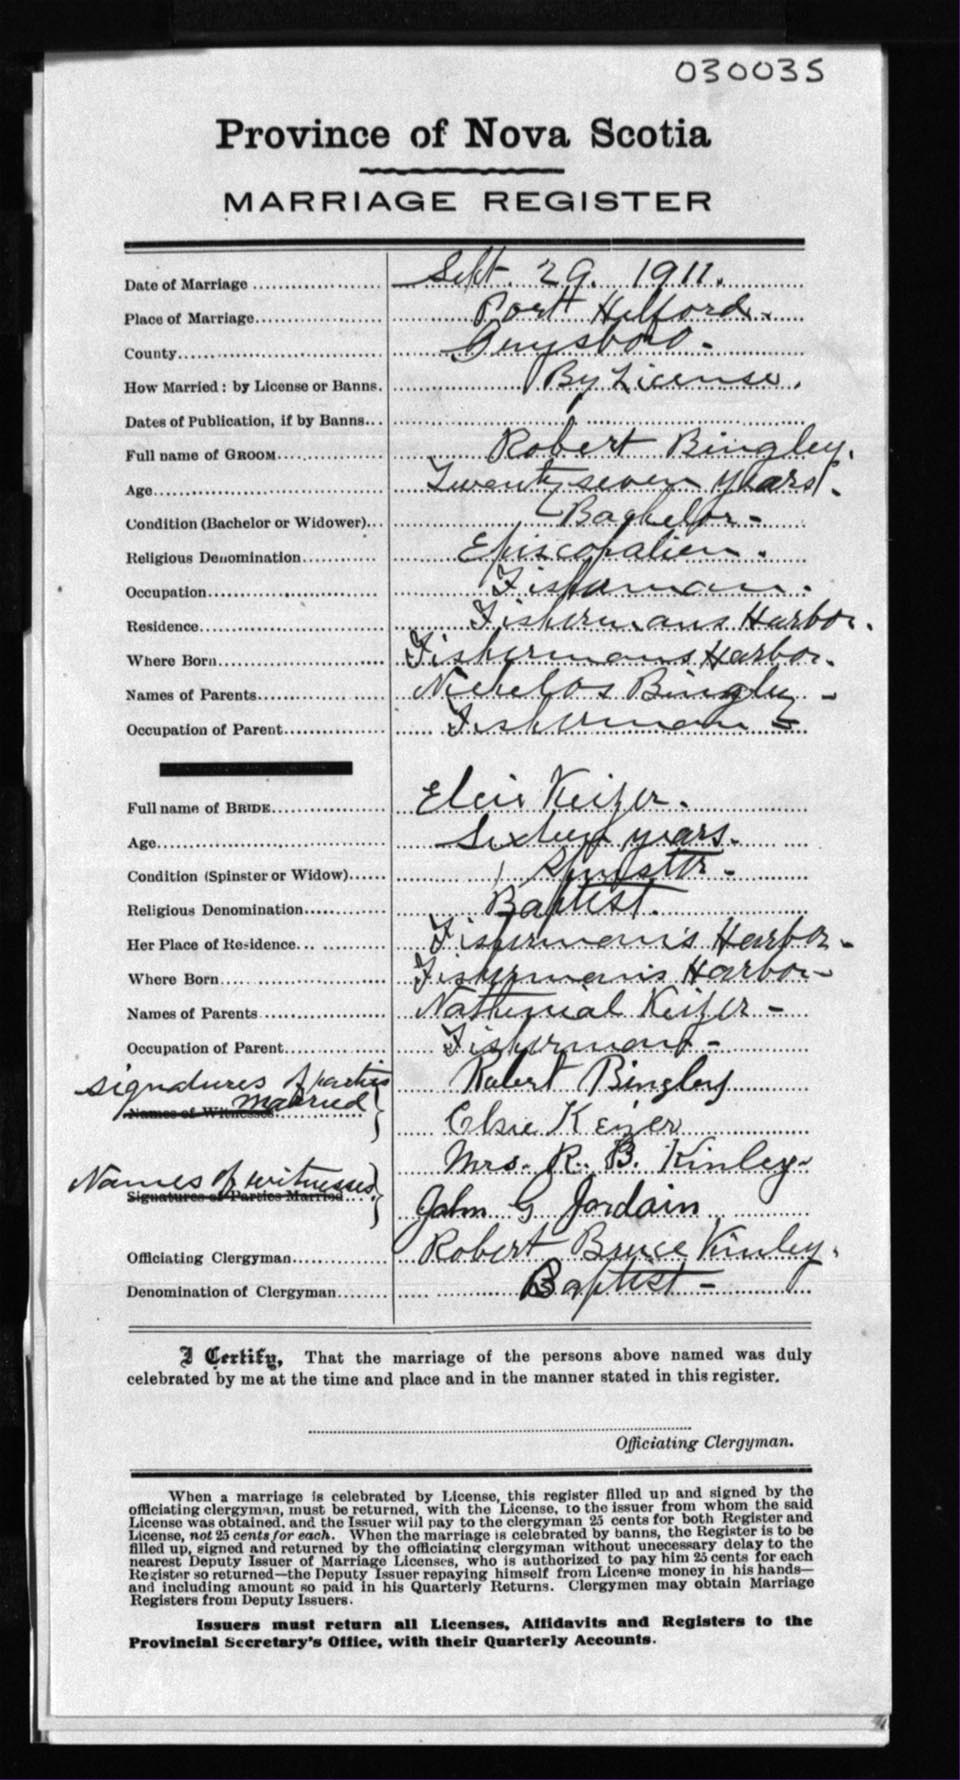 030035
Province of Nova Scotia
MARRIAGE REGISTER
Date of Marriage Sept. 29. 1911.
Place of Marriage Port Hilford.
County Guysboro -
How Married: by License or Banns. By License.
Dates of Publication, if by Banns
Full name of GROOM Robert Bingley.
Age Twenty seven years.
Condition (Bachelor or Widower) Bachelor -
Religious Denomination Episcopalien.
Occupation Fisherman.
Residence Fishermans Harbor.
Where Born Fishermans Harbor.
Names of Parents Nicholos Bingley -
Occupation of Parent Fisherman -
Full name of BRIDE Elsie Keizer.
Age Sixteen years.
Condition (Spinster or Widow) Spinster -
Religious Denomination Baptist.
Her Place of Residence Fisherman's Harbor -
Where Born Fisherman's Harbor -
Names of Parents Nathenial Keizer -
Occupation of Parent Fisherman -
signatures of parties Robert Bingley
married
Names of Witnesses Elsie Keizer
Mrs. R. B. Kinley -
Names of witnesses
Signatures of Parties Married John G Jordain
Officiating Clergyman Robert Bruce Kinley.
Denomination of Clergyman Baptist -
I Certify, That the marriage of the persons above named was duly
celebrated by me at the time and place and in the manner stated in this register.
Officiating Clergyman.
When a marriage is celebrated by License, this register filled up and signed by the
officiating clergyman, must be returned, with the License, to the issuer from whom the said
License was obtained, and the Issuer will pay to the clergyman 25 cents for both Register and
License, not 25 cents for each. When the marriage is celebrated by banns, the Register is to be
filled up, signed and returned by the officiating clergyman without unnecessary delay to the
nearest Deputy Issuer of Marriage Licenses, who is authorized to pay him 25 cents for each
Register so returned—the Deputy Issuer repaying himself from License money in his hands—
and including amount so paid in his Quarterly Returns. Clergymen may obtain Marriage
Registers from Deputy Issuers.
Issuers must return all Licenses, Affidavits and Registers to the
Provincial Secretary's Office, with their Quarterly Accounts.